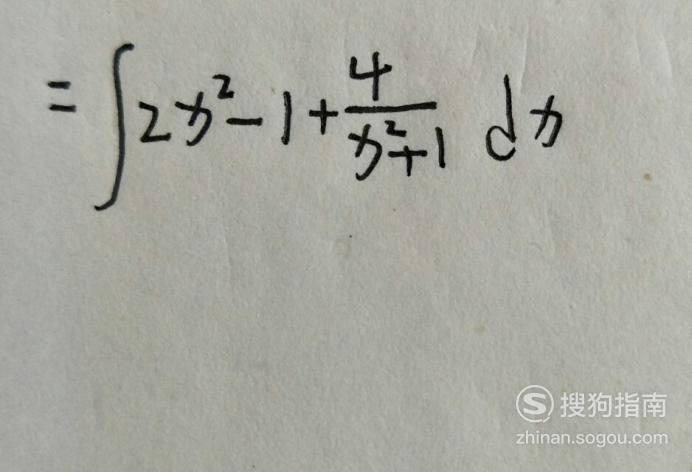 = ∫ 2x² - 1 + 4/(x²+1) dx
搜狗指南
zhinan.sogou.com